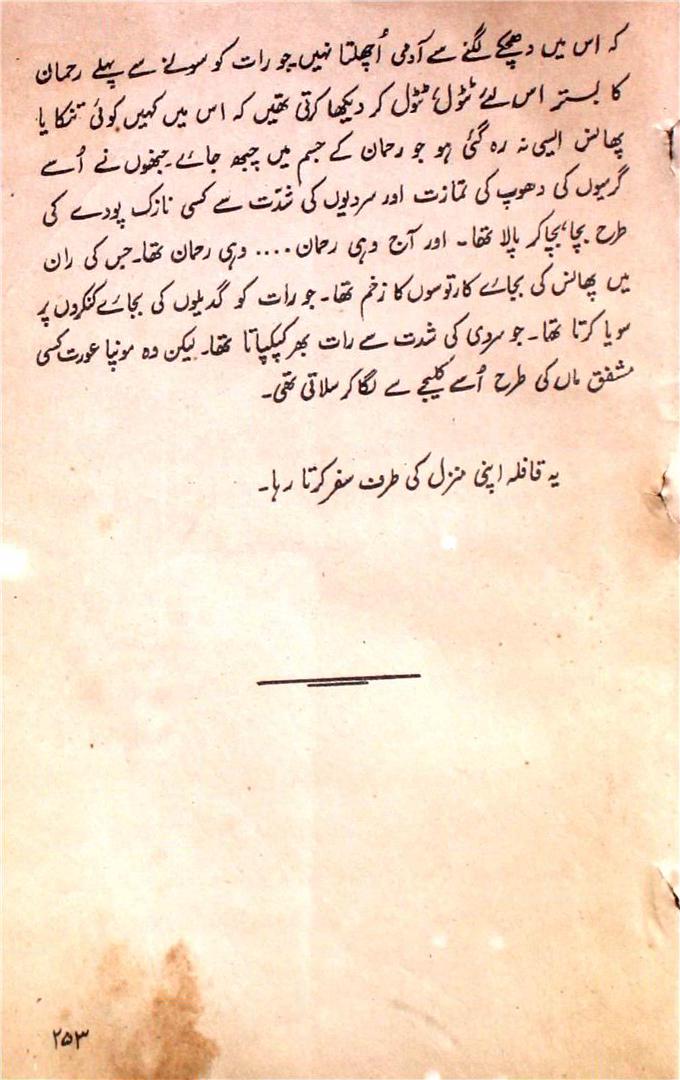 کہ اس میں دھچکے لگنے سے آدمی اُچھلتا نہیں جو رات کو سونے سے پہلے رحمان
کا بستر اس لئے ٹٹول ٹٹول کر دیکھا کرتی تھیں کہ اس میں کہیں کوئی تنکا یا
پھانس ایسی نہ رہ گئی ہو جو رحمان کے جسم میں چبھ جائے۔ جنھوں نے اُسے
گرمیوں کی دھوپ کی تمازت اور سردیوں کی شدّت سے کسی نازک پودے کی
طرح بچا بچا کر پالا تھا۔ اور آج وہی رحمان.... وہی رحمان تھا۔ جس کی ران
میں پھانس کی بجائے کارتوسوں کا زخم تھا۔ جو رات کو گدیلوں کی بجائے کنکروں پر
سویا کرتا تھا۔ جو سردی کی شدت سے رات بھر کپکپاتا تھا۔ لیکن وہ مونپا عورت کسی
مشفق ماں کی طرح اُسے کلیجے سے لگا کر سلاتی تھی۔
یہ قافلہ اپنی منزل کی طرف سفر کرتا رہا۔
۲۵۳